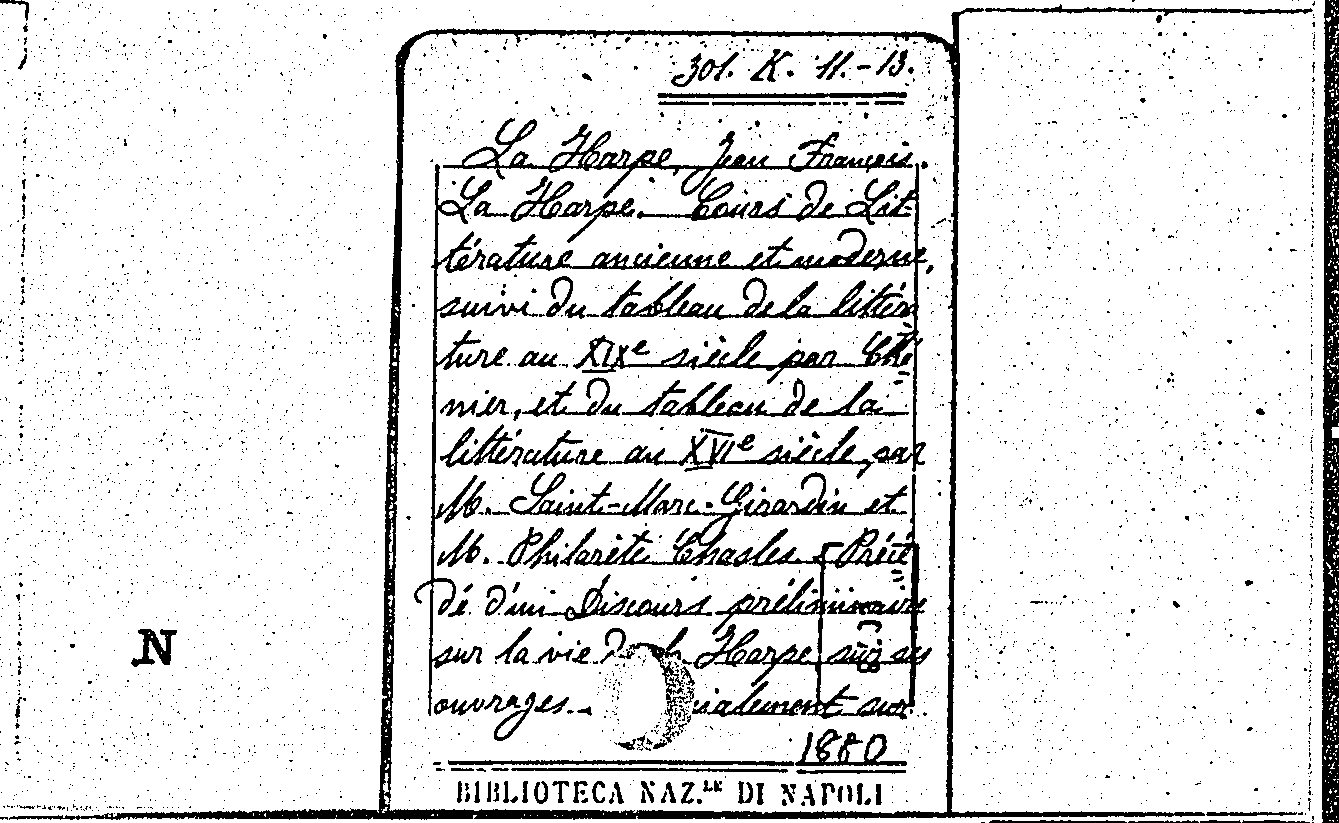 301. K. 11.-13.
La Harpe, Jean François.
La Harpe. Cours de Lit-
térature ancienne et moderne,
suivi du tableau de la littéra
ture au XIXe siècle par Ché
nier, et du tableau de la
littérature au XVIe siècle, par
M. Saint-Marc-Girardin et
M. Philarète Chasles. Précé
dé d'un Discours préliminaire
sur la vie de La Harpe, sur ses
ouvrages. sur
N
1880
BIBLIOTECA NAZ.LE DI NAPOLI